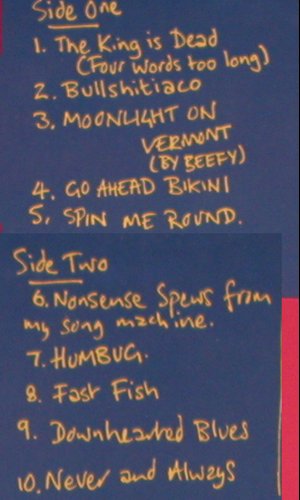 Side One
1. The King is Dead
(Four Words too long)
2. Bullshitiaco
3. MOONLIGHT ON
VERMONT
(BY BEEFY)
4. GO AHEAD BIKINI
5, SPIN ME ROUND.
Side Two
6. Nonsense Spews from
my song machine.
7. HUMBUG.
8. Fast Fish
9. Downhearted Blues
10. Never and Always